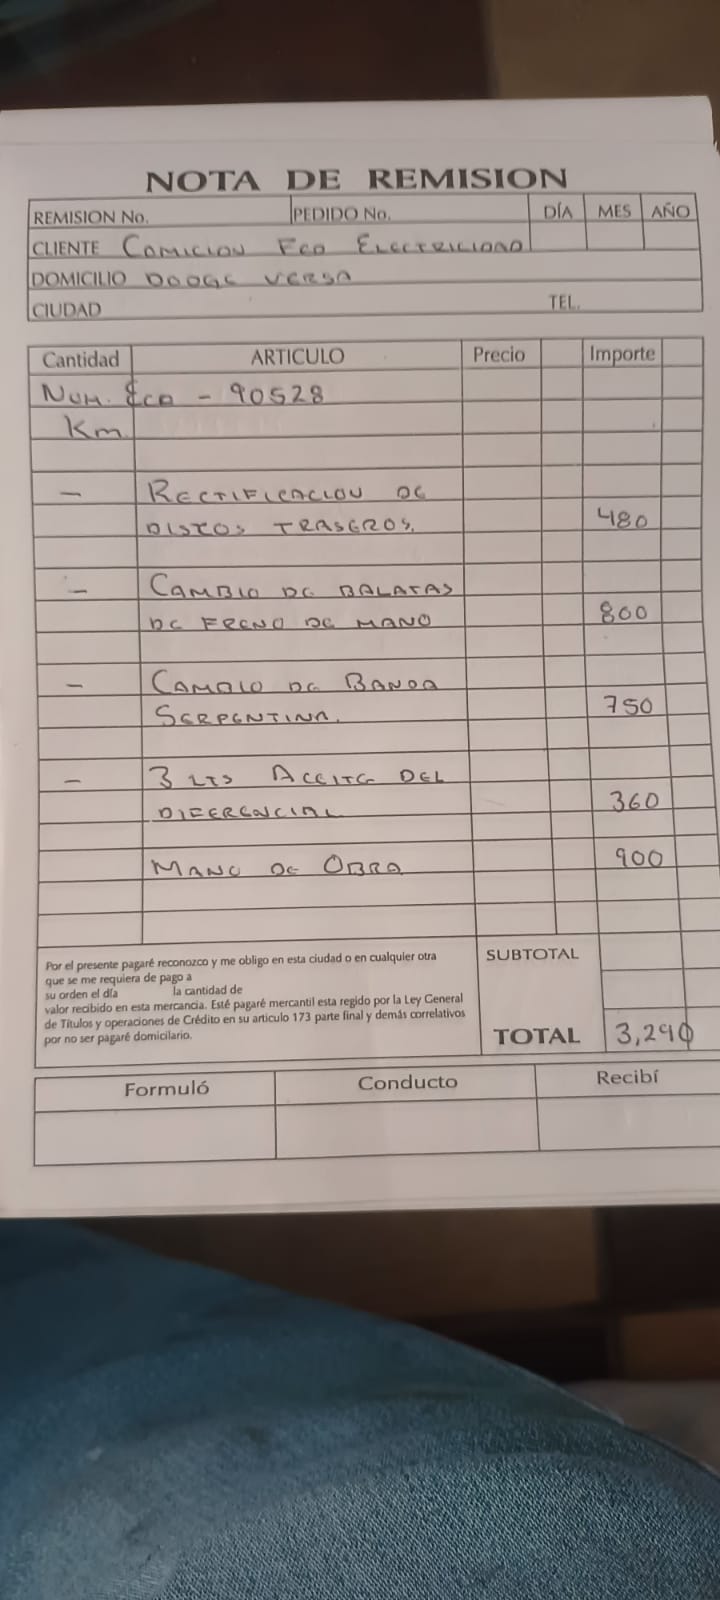 NOTA DE REMISION
REMISION No. PEDIDO No. DÍA MES AÑO
CLIENTE COMICION FED ELECTRICIDAD
DOMICILIO DODGE VERSA
CIUDAD TEL.
Cantidad ARTICULO Precio Importe
NUM. ECO - 90528
Km.
- RECTIFICACION DE
DISCOS TRASEROS. 480
- CAMBIO DE BALATAS
DE FRENO DE MANO 800
- CAMBIO DE BANDA
SERPENTINA. 750
- 3 LTS ACEITE DEL
DIFERENCIAL 360
MANO DE OBRA 900
Por el presente pagaré reconozco y me obligo en esta ciudad o en cualquier otra
que se me requiera de pago a
su orden el día la cantidad de
valor recibido en esta mercancia. Esté pagaré mercantil esta regido por la Ley General
de Títulos y operaciones de Crédito en su articulo 173 parte final y demás correlativos
por no ser pagaré domicilario.
SUBTOTAL
TOTAL 3,290
Formuló Conducto Recibí